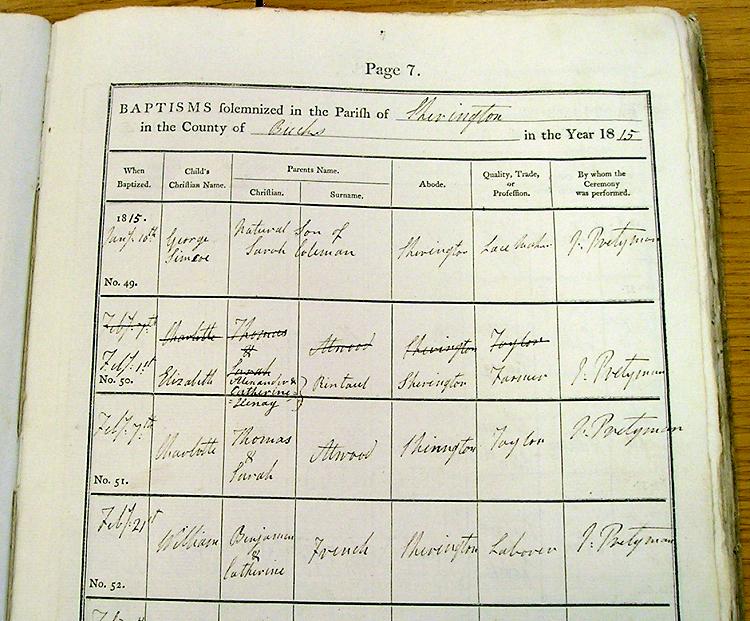 Page 7.
BAPTISMS solemnized in the Parish of Sherington
in the County of Bucks in the Year 1815
When Baptized. Child's Christian Name. Parents Name. Christian. Surname. Abode. Quality, Trade, or Profession. By whom the Ceremony was performed.
1815.
Jany. 10th George Simcoe Natural Son of Sarah Coleman Sherington Lace Maker J: Pretyman
No. 49.
Feby. 7th Charlotte Thomas & Sarah Atwood Sherington Taylor
Feby. 1st Elizabeth Alexander & Catherine Henay Rintaul Sherington Farmer J: Pretyman
No. 50.
Feby. 7th Charlotte Thomas & Sarah Atwood Sherington Taylor J: Pretyman
No. 51.
Feby. 21st William Benjamin & Catherine French Sherington Laborer J: Pretyman
No. 52.